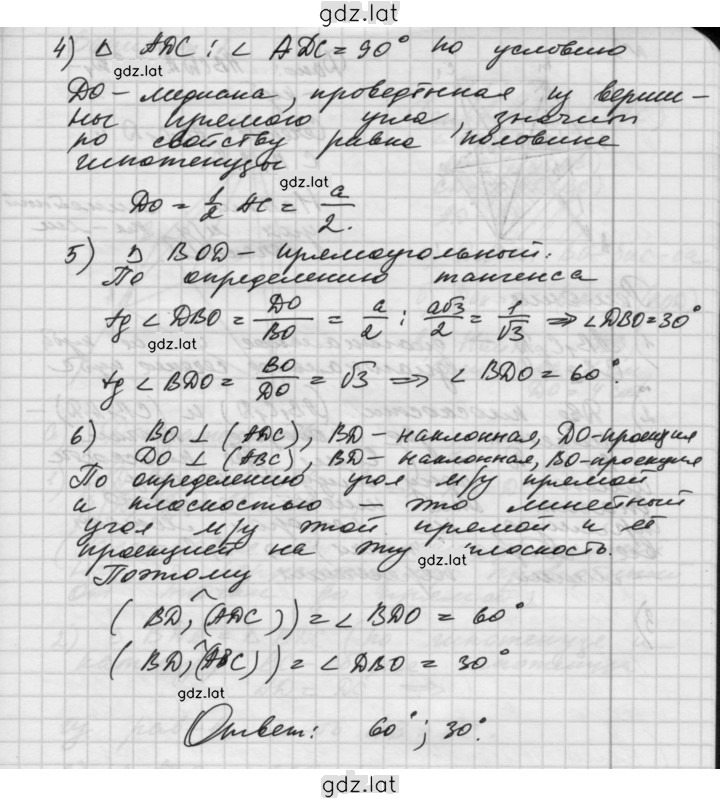 gdz.lat
4) △ ADC : ∠ ADC = 90° по условию
gdz.lat
DO – медиана, проведённая из верши-
ны прямого угла, значит
по свойству равна половине
гипотенузы
gdz.lat
DO = 1/2 AC = a/2.
5) △ BOD – прямоугольный.
По определению тангенса
tg ∠ DBO = DO/BO = a/2 : a√3/2 = 1/√3 ⇒ ∠DBO = 30°
gdz.lat
tg ∠ BDO = BO/DO = √3 ⇒ ∠ BDO = 60°.
6) BO ⊥ (ADC), BD – наклонная, DO – проекция
DO ⊥ (ABC), BD – наклонная, BO – проекция
По определению угол м/у прямой
и плоскостью – это линейный
угол м/у этой прямой и её
проекцией на эту плоскость.
gdz.lat
Поэтому
(BD, ^(ADC)) = ∠ BDO = 60°
(BD, ^(ABC)) = ∠ DBO = 30°
gdz.lat
Ответ: 60°; 30°.
gdz.lat